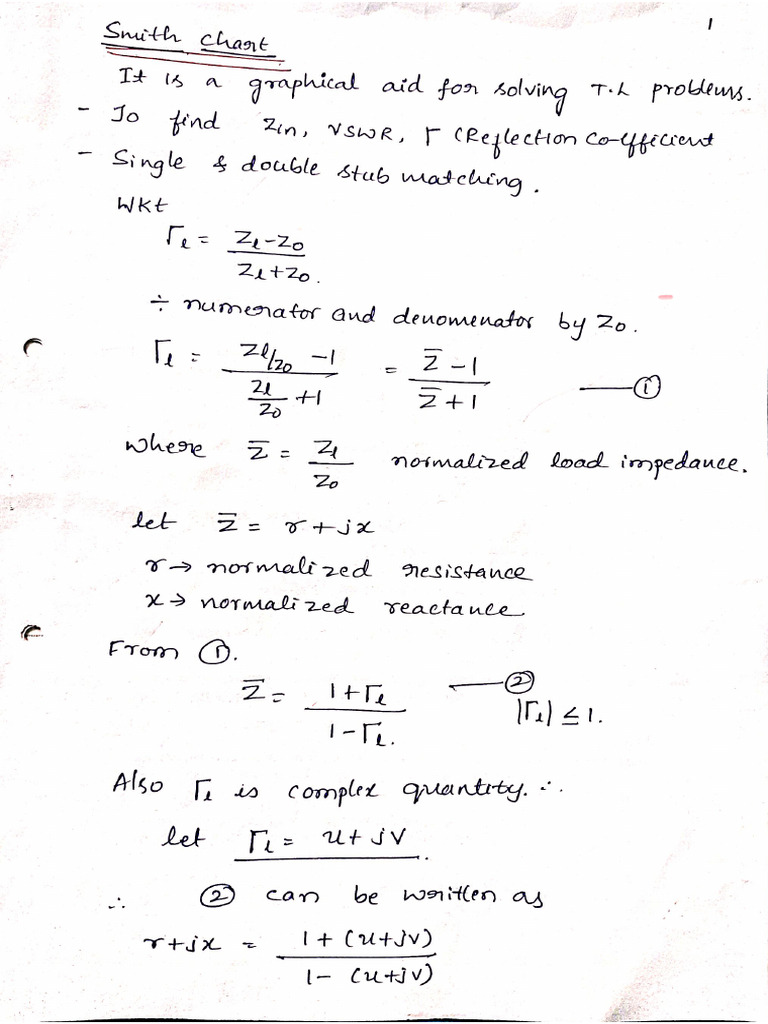 1
Smith Chart
It is a graphical aid for solving T.L problems.
- To find Zin, VSWR, Γ (Reflection Co-efficient
- Single & double stub matching.
WKT
Γl = Zl-Z0 / Zl+Z0.
÷ numerator and denomenator by Z0.
Γl = (Zl/Z0 - 1) / (Zl/Z0 + 1) = (Z̅ - 1) / (Z̅ + 1) —— ①
where Z̅ = Zl / Z0 normalized load impedance.
let Z̅ = r + jx
r → normalized resistance
x → normalized reactance
From ①.
Z̅ = (1 + Γl) / (1 - Γl.) —— ②
|Γl| ≤ 1.
Also Γl is complex quantity. ∴
let Γl = u + jv.
∴ ② can be written as
r + jx = 1 + (u+jv) / 1 - (u+jv)